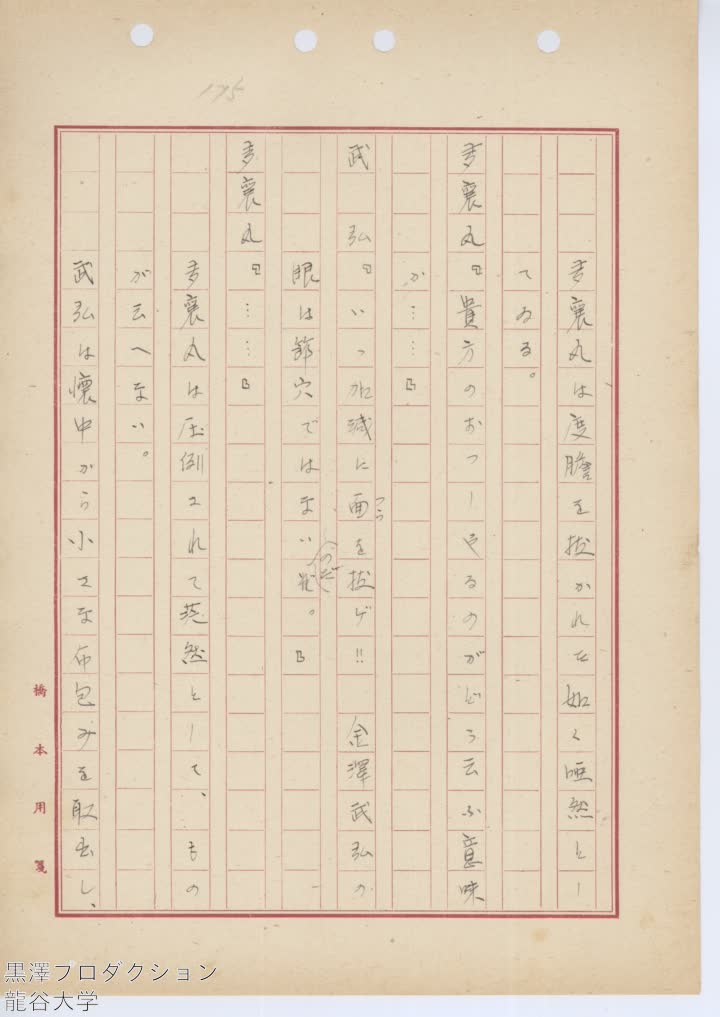 175
多襄丸は度膽を抜かれた如く唖然とし
てゐる。
多襄丸『貴方のおつしやるのがどう云ふ意味
か……』
武　弘『いゝ加減に面を拔げ‼　金澤武弘の
つら
眼は節穴ではない
のだ
ぞ。』
多襄丸『……』
多襄丸は圧倒されて茫然として、もの
が云へない。
武弘は懷中から小さな布包みを取出し、
橋本用箋
黒澤プロダクション
龍谷大学